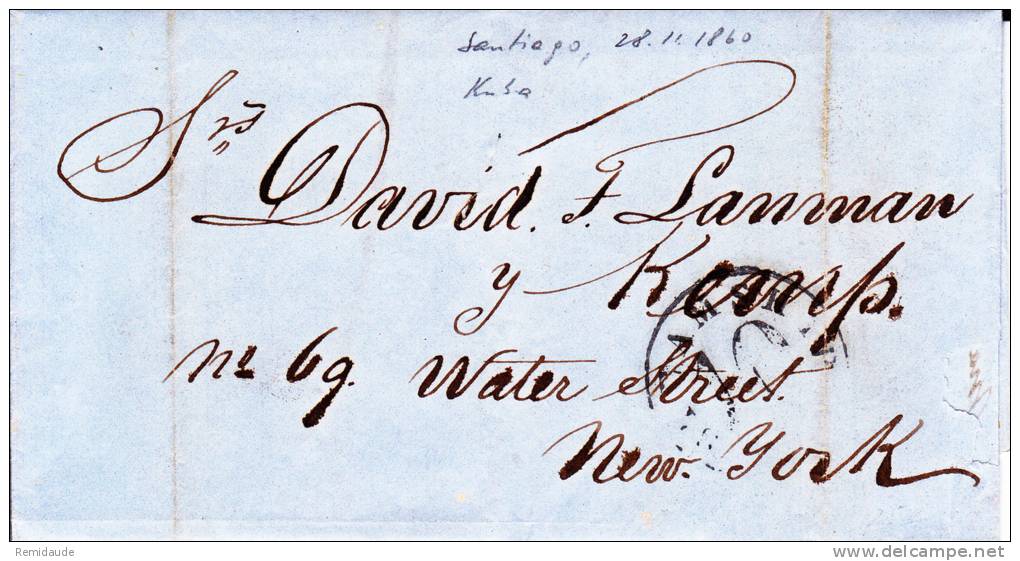 Santiago, 28.11.1860
Kuba
Srs David. F. Lanman
y Kemp.
No 69. Water Street.
New. York
Remidaude
www.delcampe.net